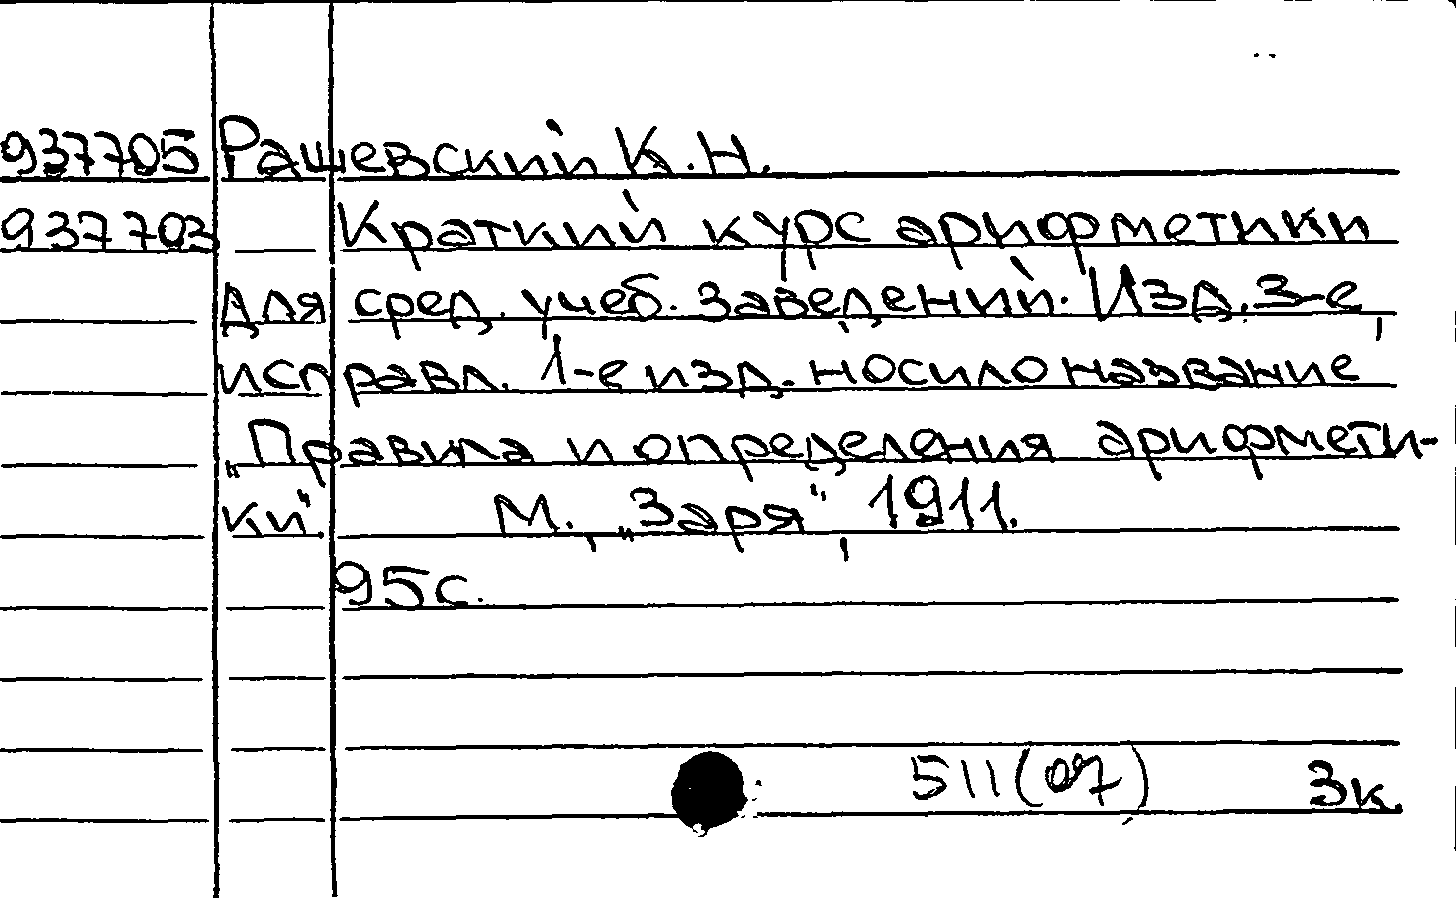 937705 Рашевский К.Н.
937703 Краткий курс арифметики
для сред. учеб. заведений. Изд. 3-е,
исправл. 1-е изд. носило название
„Правила и определения арифмети-
ки". М., „Заря", 1911.
95с.
511(07) 3к.